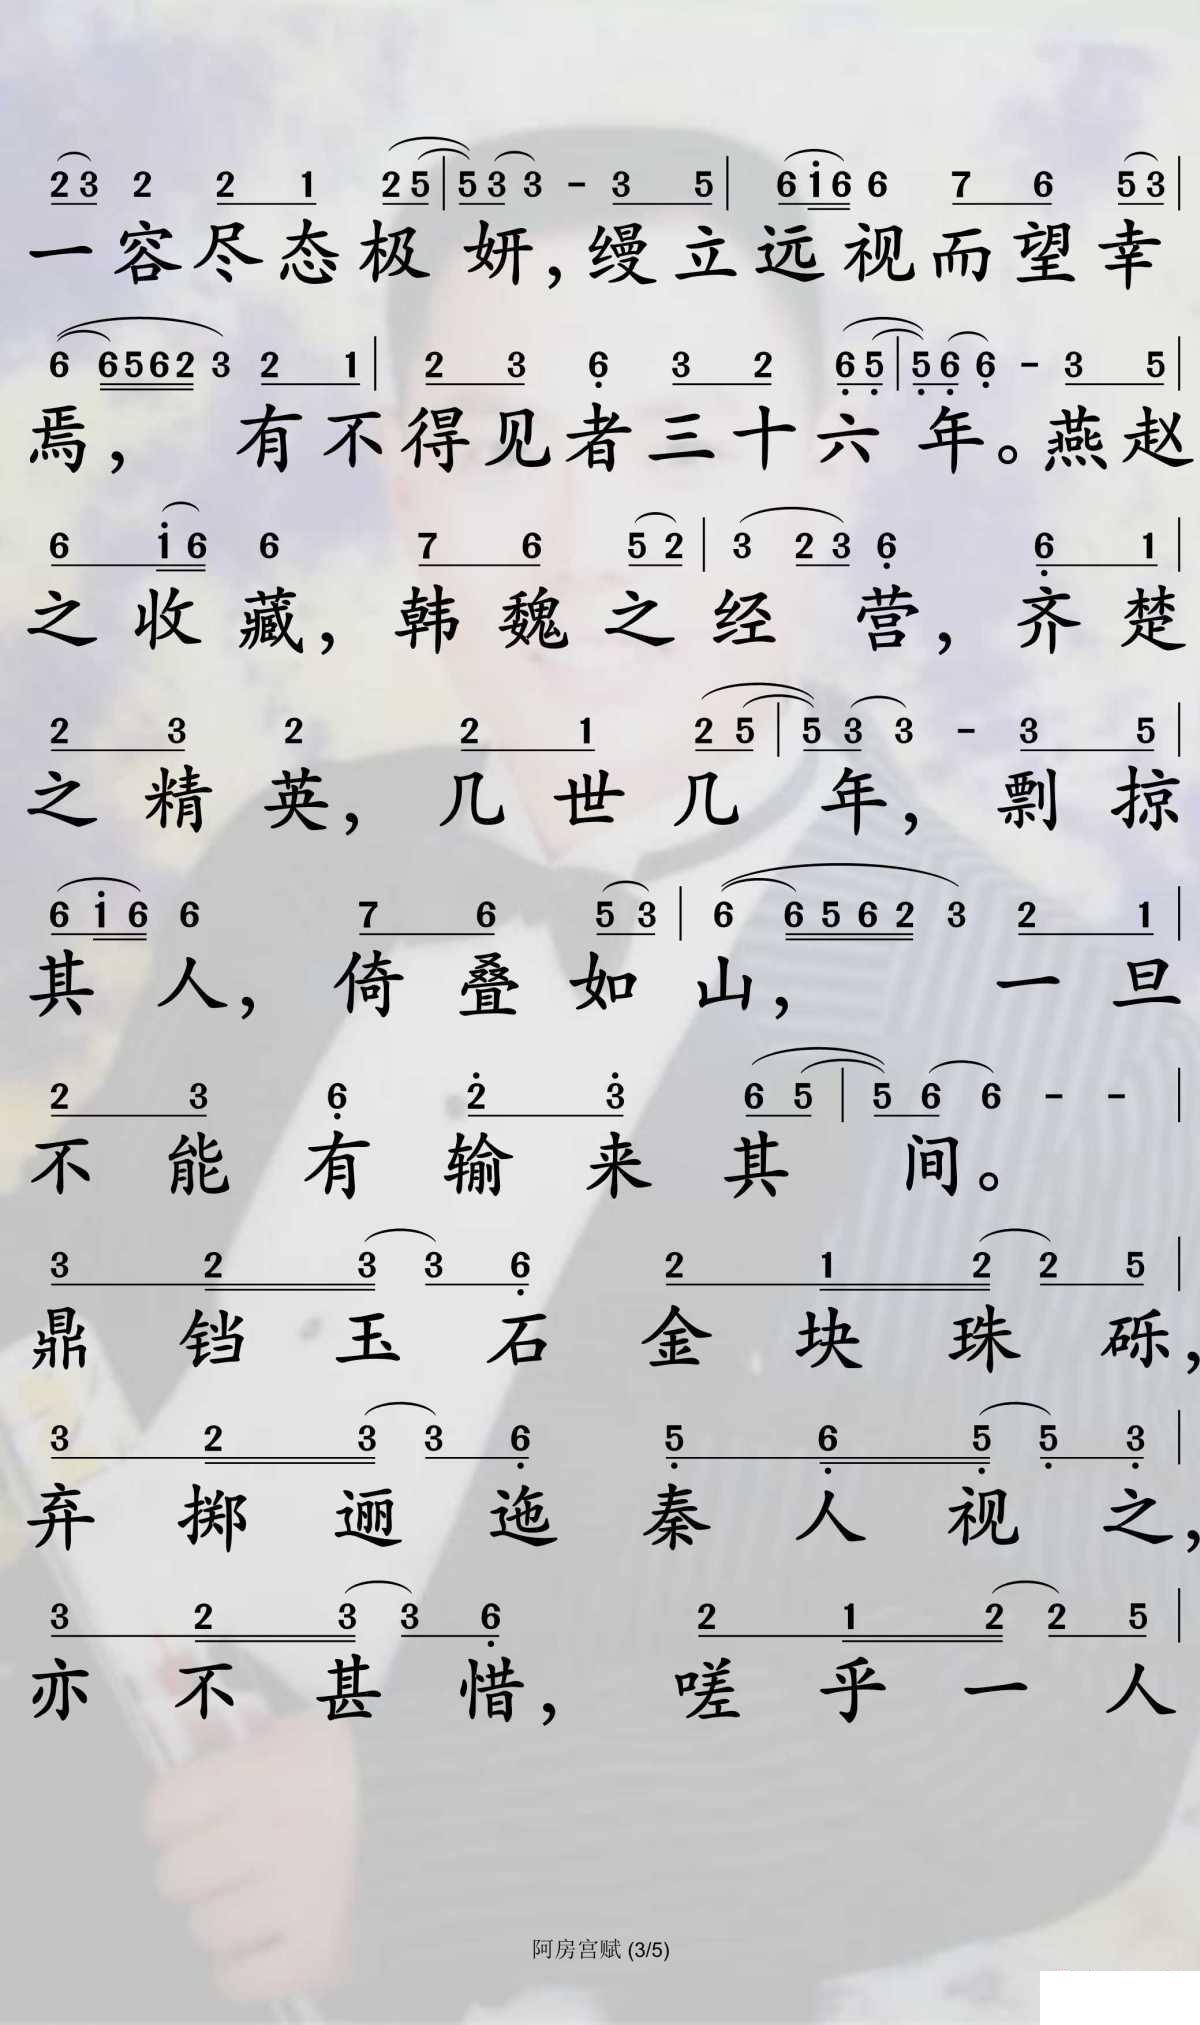 2 3 2 2 1 2 5 | 5 3 3 - 3 5 | 6 i 6 6 7 6 5 3 |
一容尽态极妍，缦立远视而望幸
6 6 5 6 2 3 2 1 | 2 3 6 3 2 6 5 | 5 6 6 - 3 5 |
焉，有不得见者三十六年。燕赵
6 i 6 6 7 6 5 2 | 3 2 3 6 6 1 |
之收藏，韩魏之经营，齐楚
2 3 2 2 1 2 5 | 5 3 3 - 3 5 |
之精英，几世几年，剽掠
6 i 6 6 7 6 5 3 | 6 6 5 6 2 3 2 1 |
其人，倚叠如山，一旦
2 3 6 2 3 6 5 | 5 6 6 - - |
不能有输来其间。
3 2 3 3 6 2 1 2 2 5 |
鼎铛玉石金块珠砾，
3 2 3 3 6 5 6 5 5 3 |
弃掷逦迤秦人视之，
3 2 3 3 6 2 1 2 2 5 |
亦不甚惜，嗟乎一人
阿房宫赋 (3/5)